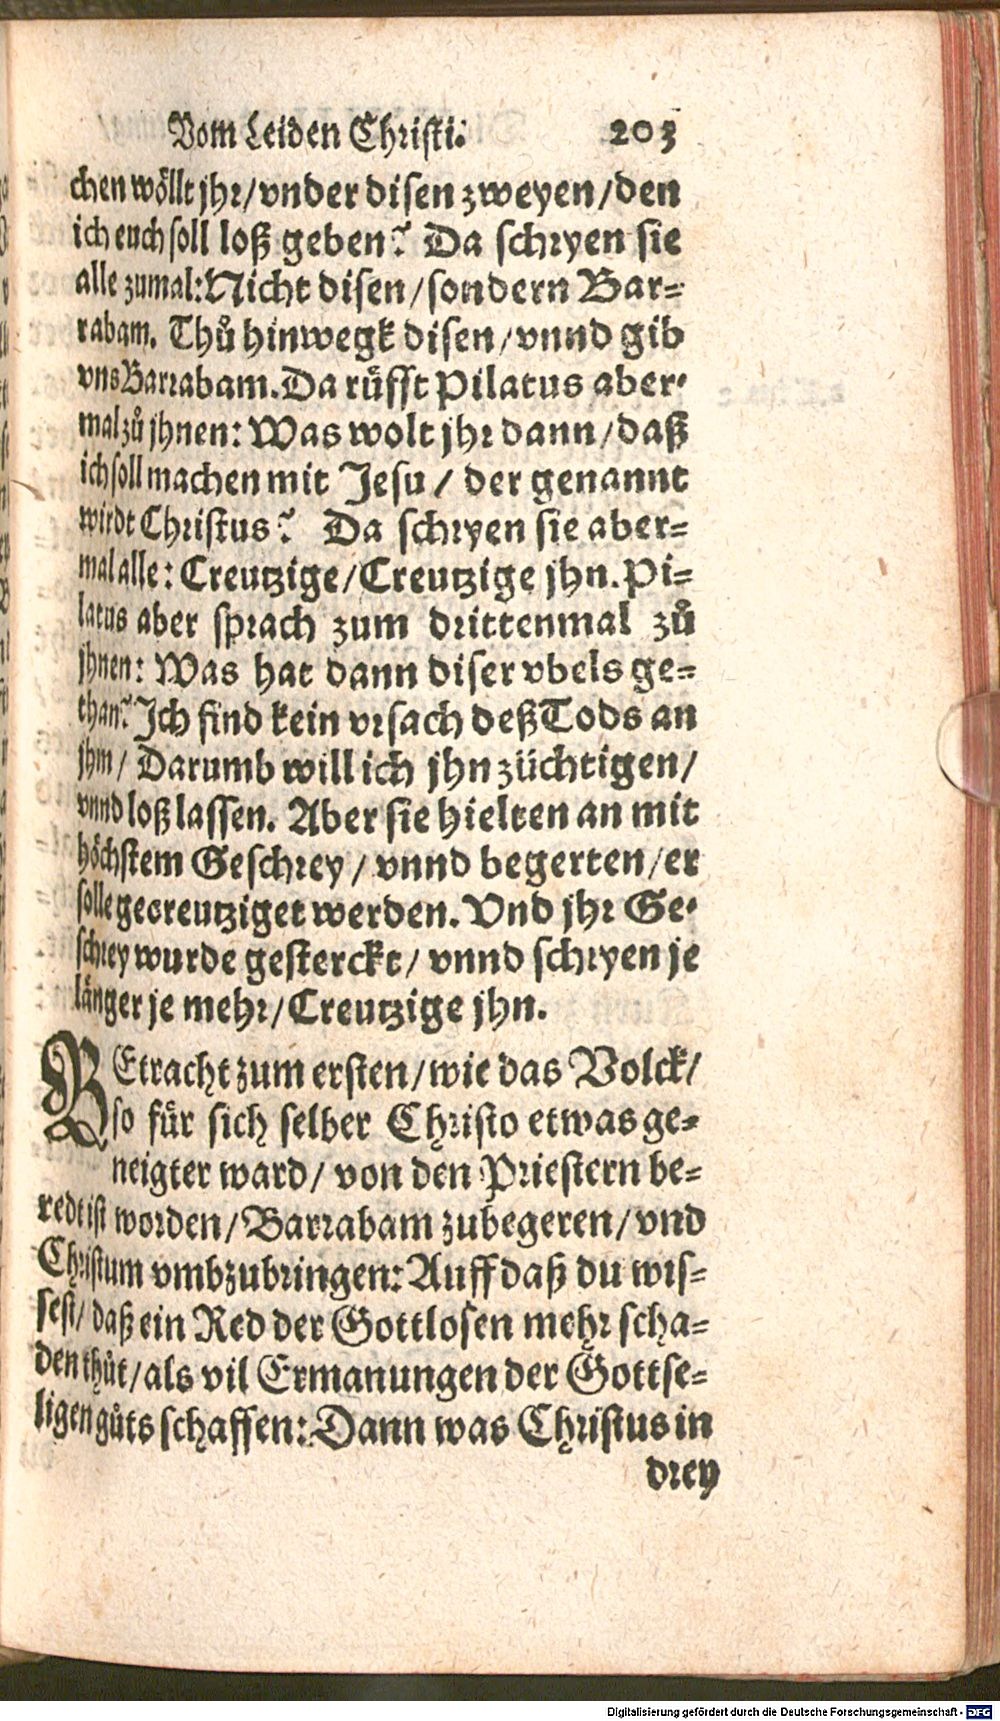 Vom Leiden Christi. 203
chen wöllt jhr/vnder disen zweyen/den
ich euch soll loß geben? Da schryen sie
alle zumal: Nicht disen/sondern Bar=
rabam. Thů hinwegk disen/vnnd gib
vns Barrabam. Da rüfft Pilatus aber=
mal zů jhnen: Was wolt jhr dann/daß
ich soll machen mit Jesu/ der genannt
wirdt Christus? Da schryen sie aber=
mal alle: Creutzige/Creutzige jhn. Pi=
latus aber sprach zum drittenmal zů
jhnen: Was hat dann diser vbels ge=
than? Ich find kein vrsach deß Tods an
jhm/ Darumb will ich jhn züchtigen/
vnnd loß lassen. Aber sie hielten an mit
höchstem Geschrey/ vnnd begerten/er
solle gecreutziget werden. Vnd jhr Ge=
schrey wurde gesterckt/ vnnd schryen je
länger je mehr/Creutzige jhn.
BEtracht zum ersten/wie das Volck/
so für sich selber Christo etwas ge=
neigter ward/ von den Priestern be=
redt ist worden/Barrabam zubegeren/vnd
Christum vmbzubringen: Auff daß du wis=
sest/ daß ein Red der Gottlosen mehr scha=
den thůt/als vil Ermanungen der Gottse=
ligen gůts schaffen: Dann was Christus in
drey
Digitalisierung gefördert durch die Deutsche Forschungsgemeinschaft - DFG